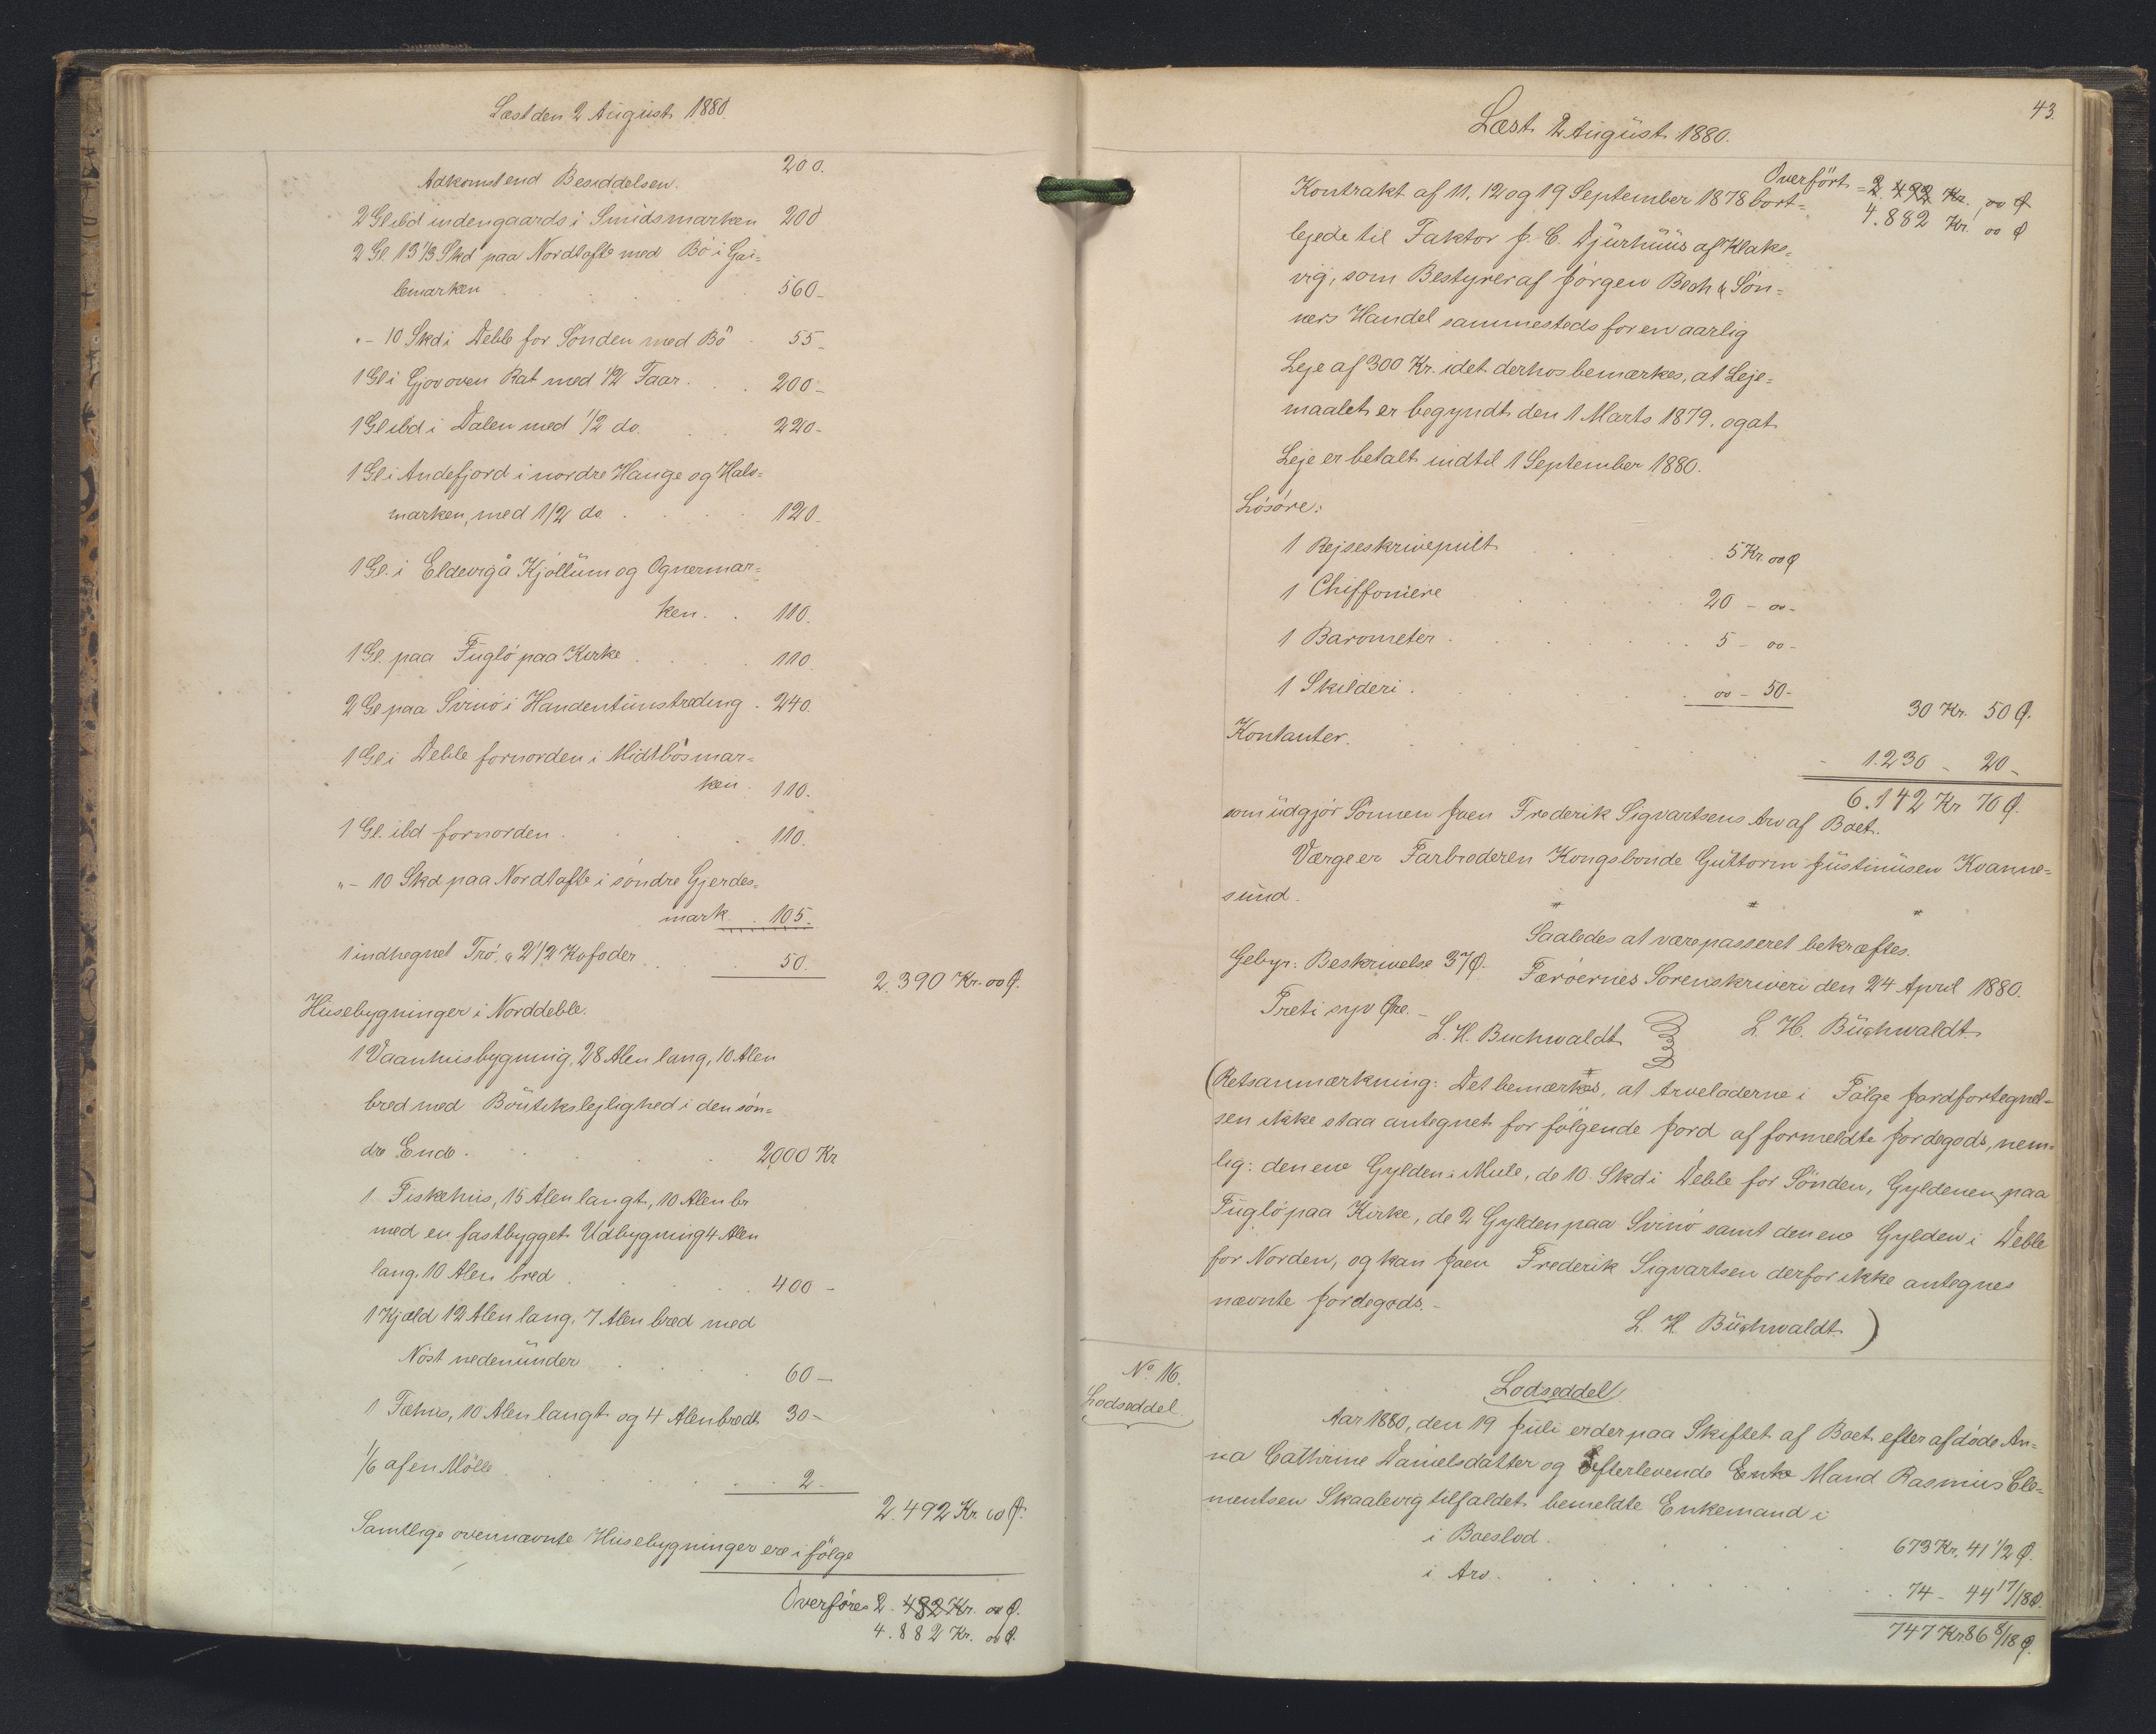 Læst den 2 August 1880.
Adkomst end Besiddelsen. 200.
2 Gl ibd indengaards i Smidsmarken 200
2 Gl. 13 1/3 Skd paa Nordtofte med Bö i Gai=
lemarken 560 -
" - 10 Skd i Deble for Sönden med Bö 55 -
1 Gl i Gjov oven Rat med 1/2 Faar. 200 -
1 Gl ibd i Dalen med 1/2 do. 220 -
1 Gl i Andefjord i nordre Hauge og Hals=
marken, med 1/2 do 120 -
1 Gl. i Eldevig å Kjöllum og Ognermar=
ken. 110.
1 Gl. paa Fuglö paa Kirke 110.
2 Gl paa Svinö i Handentunstreding. 240.
1 Gl i Deble fornorden i Midtbösmar=
ken. 110.
1 Gl. ibd fornorden. 110.
" - 10 Skd paa Nordtofte i söndre Gjerdes=
mark. 105.
1 indhegnet Trö, a 2 1/2 Kofoder 50.
2.390 Kr. 00 Ø.
Husebygninger i Norddeble.
1 Vaanhusbygning, 28 Alen lang, 10 Alen
bred med Boutikslejlighed i den sön=
dre Ende. 2000 Kr
1 Fiskehus, 15 Alen langt, 10 Alen br
med en fastbygget Udbygning 4 Alen
lang, 10 Alen bred 400 -
1 Kjæld 12 Alen lang, 7 Alen bred med
Nöst nedenunder 60 -
1 Fæhus, 10 Alen langt og 4 Alen bredt 30 -
1/6 af en Mölle 2 -
2.492 Kr. 00 Ø.
Samtlige ovennævnte Husebygninger ere i fölge
Overföres 2.482 Kr. 00 Ø.
4.882 Kr. 00 Ø.
43.
Læst 2 August 1880.
Overfört = 2.492 Kr. 00 Ø
4.882 Kr. 00 Ø
Kontrakt af 11, 12 og 19 September 1878 bort=
lejede til Faktor J. C. Djurhuus af Klaks=
vig, som Bestyrer af Jörgen Bech & Sön=
ners Handel sammesteds for en aarlig
Leje af 300 Kr. idet derhos bemærkes, at Leje=
maalet er begyndt den 1 Marts 1879, og at
Leje er betalt indtil 1 September 1880.
Lösöre:
1 Rejseskrivepult 5 Kr. 00 Ø
1 Chiffoniere 20 - 00 -
1 Barometer. 5 - 00 -
1 Skilderi. 00 - 50 -
30 Kr. 50 Ø.
Kontanter. 1.230 - 20 -
6.142 Kr 70 Ø.
som udgjör Sönnen Joen Frederik Sigvartsens Arv af Boet.
Værge er Farbroderen Kongsbonde Guttorm Justinusen Kvanne=
sund.
Saaledes at være passeret bekræftes.
Gebyr: Beskrivelse 37 Ø. Færöernes Sorenskriveri den 24 April 1880.
Treti syv Øre. -
L. H. Buchwaldt L. H. Buchwaldt.
(Retsanmærkning: Det bemærkes, at Arveladerne i Fölge Jordfortegnel=
sen ikke staa antegnet for fölgende Jord af formeldte Jordegods, nem=
lig: den ene Gylden i Mule, de 10 Skd i Deble for Sönden, Gyldenen paa
Fuglö paa Kirke, de 2 Gylden paa Svinö samt den ene Gylden i Deble
for Norden, og kan Joen Frederik Sigvartsen derfor ikke antegnes
nævnte Jordegods. -
L. H. Buchwaldt )
No 16.
Lodseddel.
Lodseddel
Aar 1880, den 19 Juli er der paa Skiftet af Boet efter afdöde An=
na Cathrine Danielsdatter og Efterlevende Enke Mand Rasmus Cle=
mentsen Skaalevig tilfaldet bemeldte Enkemand i
i Boeslod. 673 Kr. 41 1/2 Ø.
i Arv. 74 - 44 17/18 Ø.
747 Kr 86 8/18 Ø.